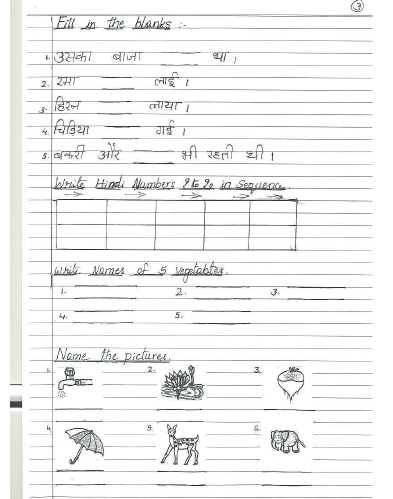 3
Fill in the blanks :-
1. उसका बाजा ____ था ।
2. रमा ____ लाई ।
3. हिरन ____ लाया ।
4. चिडिया ____ गई ।
5. बकरी और ____ भी रहती थी ।
Write Hindi Numbers १ to १० in Sequence.
Write Names of 5 Vegetables.
1. 2. 3.
4. 5.
Name the pictures.
1. 2. 3.
4. 5. 6.